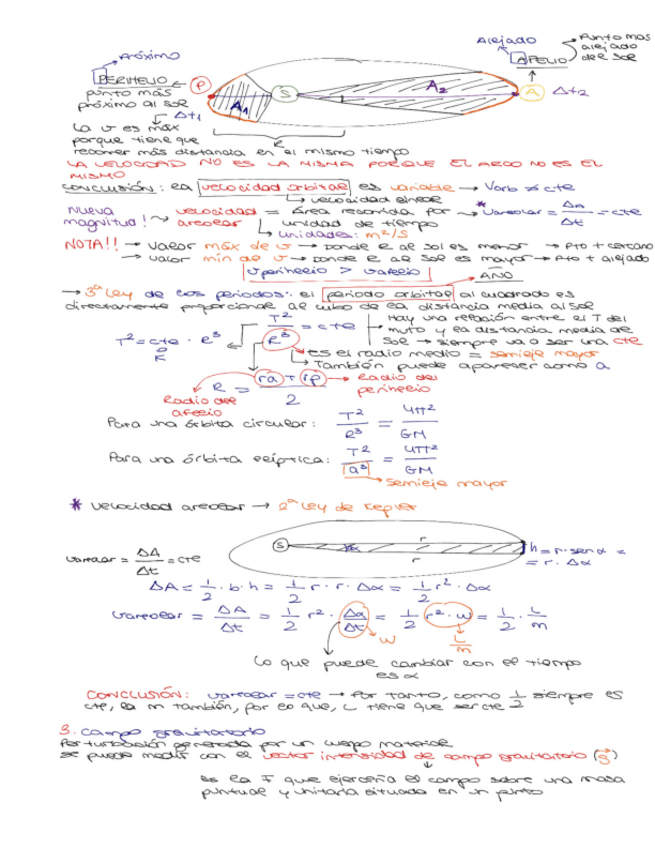 Próximo
Alejado
Punto más alejado del Sol
PERIHELIO
P
S
A1
A2
A
AFELIO
Δt2
punto más próximo al Sol
Δt1
La v es máx
porque tiene que
recorrer más distancia en el mismo tiempo
LA VELOCIDAD NO ES LA MISMA PORQUE EL ARCO NO ES EL
MISMO
CONCLUSIÓN: la velocidad orbital es variable → Vorb ≠ cte
velocidad lineal
Nueva magnitud! velocidad areolar = Área recorrida por unidad de tiempo → * Vareolar = ΔA/Δt = cte
unidades: m²/s
NOTA!! → valor máx de v → donde R al sol es menor → Pto + cercano
→ valor mín de v → donde R al sol es mayor → Pto + alejado
v perihelio > v afelio
AÑO
→ 3ª Ley de los periodos: el periodo orbital al cuadrado es
directamente proporcional al cubo de la distancia media al Sol
T²/R³ = cte
Hay una relación entre el T del
y la distancia media al
Sol → siempre va a ser una cte
T² = cte · R³
K
es el radio medio = semieje mayor
También puede aparecer como a
R = (ra + rp)/2
Radio del perihelio
Radio del afelio
Para una órbita circular: T²/R³ = 4π²/GM
Para una órbita elíptica: T²/a³ = 4π²/GM
Semieje mayor
* velocidad areolar → 2ª Ley de Kepler
S
α
r
r
h = r · sen α =
= r · Δα
vareolar = ΔA/Δt = cte
ΔA = 1/2 · b · h = 1/2 r · r · Δα = 1/2 r² · Δα
vareolar = ΔA/Δt = 1/2 r² · Δα/Δt = 1/2 r² · w = 1/2 · L/m
w
L/m
Lo que puede cambiar con el tiempo
es α
CONCLUSIÓN: vareolar = cte → Por tanto, como 1/2 siempre es
cte, la m también, por lo que, L tiene que ser cte
3. Campo gravitatorio
Perturbación generada por un cuerpo material
Se puede medir con el vector intensidad de campo gravitatorio (g)
es la F que ejercería el campo sobre una masa
puntual y unitaria situada en un punto